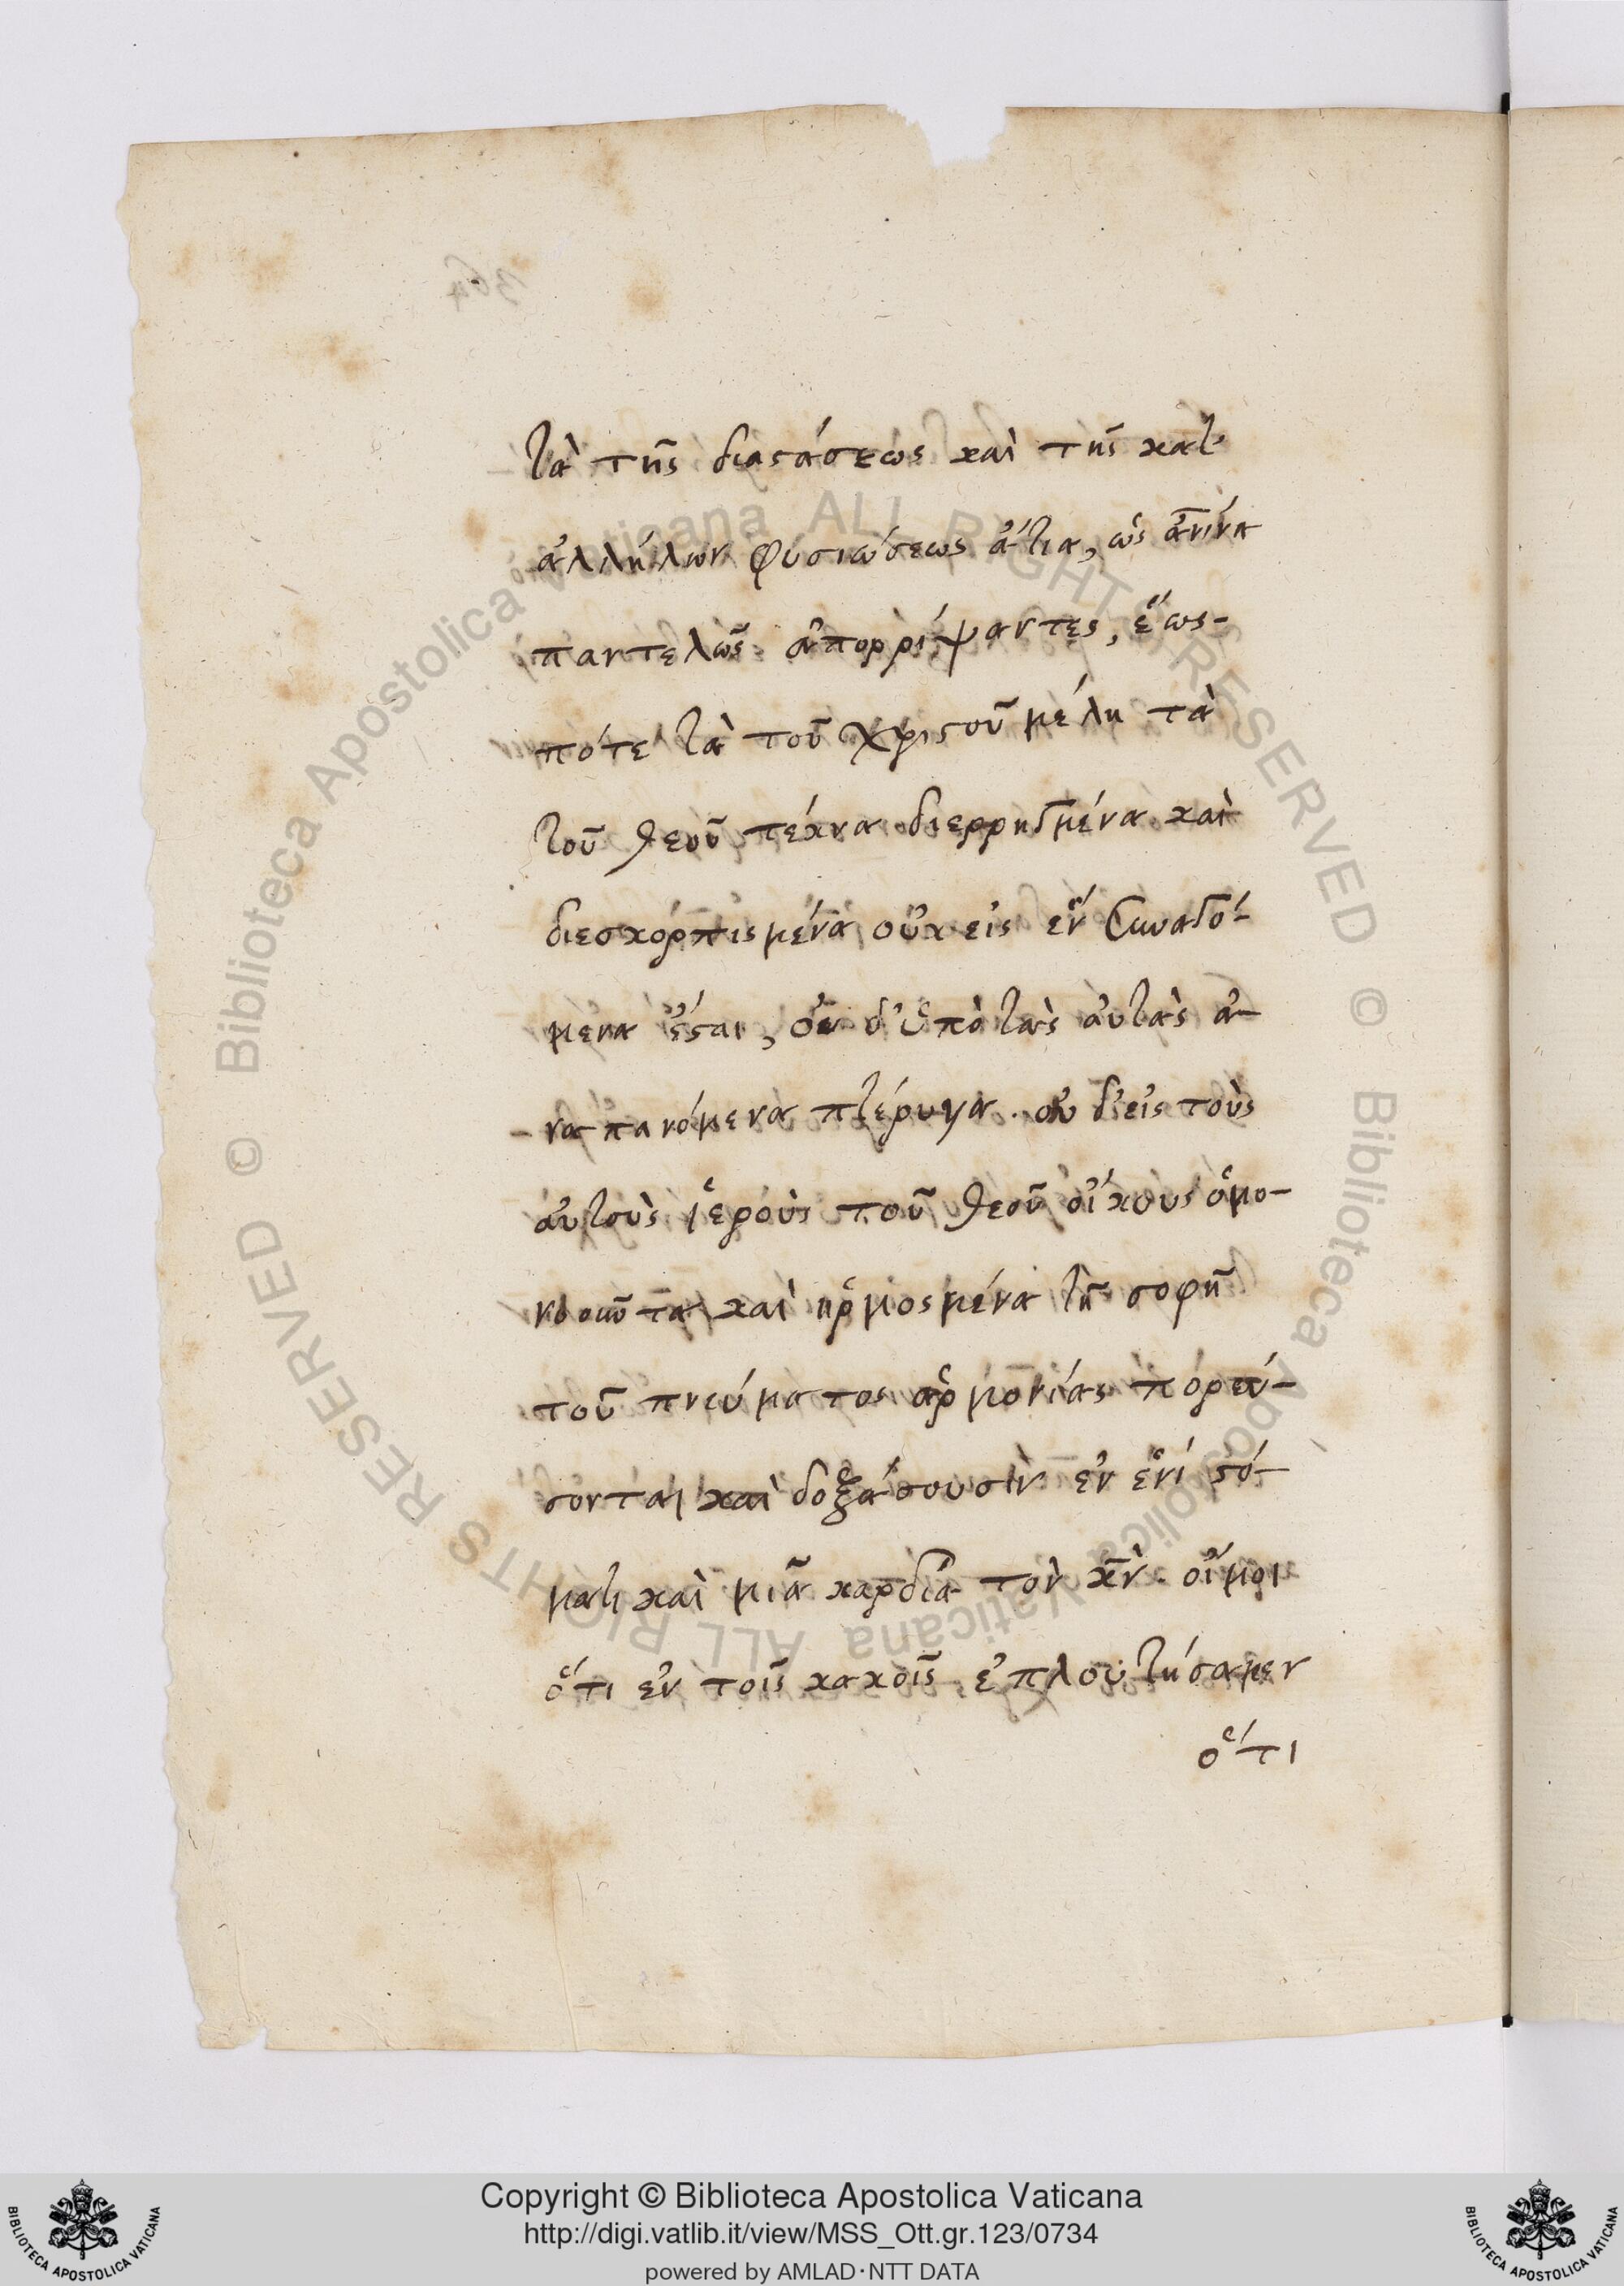 τὰ τῆς διαστάσεως καὶ τῆς κατ'
ἀλλήλων φυσιώσεως ἄτια, ὡς
παντελῶς ἀπορρίψαντες, ἕως-
πότε τὰ τοῦ χριστοῦ μέλη τὰ
τοῦ θεοῦ τέκνα διερρηγμένα καὶ
διεσκορπισμένα οὐκ εἰς ἓν συναγό-
μενα ἔσται, οὐ δ' ὑπὸ τὰς αὐτὰς ἀ-
ναπανόμενα πτέρυγα. οὐ δ' εἰς τοὺς
αὐτοὺς ἱεροὺς τοῦ θεοῦ οἴκους ὁμο-
νοοῦντα καὶ ἡρμοσμένα τῇ σοφῇ
τοῦ πνεύματος ἁρμονίας πορεύ-
σονται καὶ δοξάσουσιν ἐν ἑνί στό-
ματι καὶ μιᾶ καρδίᾳ τὸν χν. οἴμοι
ὅτι ἐν τοῖς κακοῖς ἐπλουτήσαμεν
ὅτι
Copyright © Biblioteca Apostolica Vaticana
http://digi.vatlib.it/view/MSS_Ott.gr.123/0734
powered by AMLAD·NTT DATA
Biblioteca Apostolica Vaticana ALL RIGHTS RESERVED ©
Biblioteca Apostolica Vaticana ALL RIGHTS RESERVED ©
BIBLIOTECA APOSTOLICA VATICANA
BIBLIOTECA APOSTOLICA VATICANA